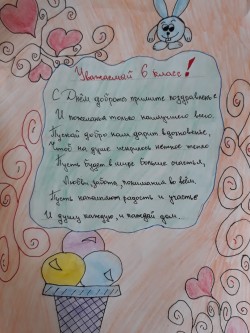 Уважаемый 6 класс!
С Днём доброты примите поздравления
И пожелания только наилучшего всего.
Пускай добро вам дарит вдохновение,
Чтоб на душе искрилось нежное тепло
Пусть будет в мире больше счастья,
Любви, заботы, понимания во всём,
Пусть наполняют радость и участье
И душу каждую, и каждый дом.